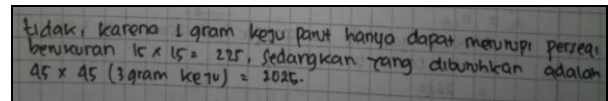 tidak, karena 1 gram keju parut hanya dapat menutupi persegi
berukuran 15 x 15 = 225, sedangkan yang dibutuhkan adalah
45 x 45 (3 gram keju) = 2025.